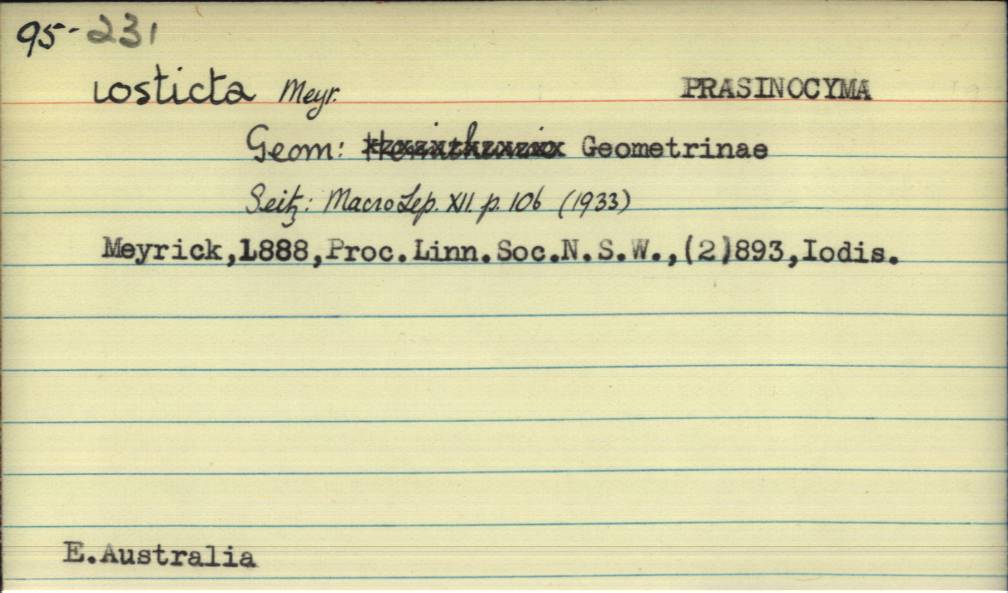 95-231
iosticta Meyr. PRASINOCYMA
Geom: Geometrinae
Seitz: MacroLep. XII. p. 106 (1933)
Meyrick,1888,Proc.Linn.Soc.N.S.W.,(2)893,Iodis.
E.Australia